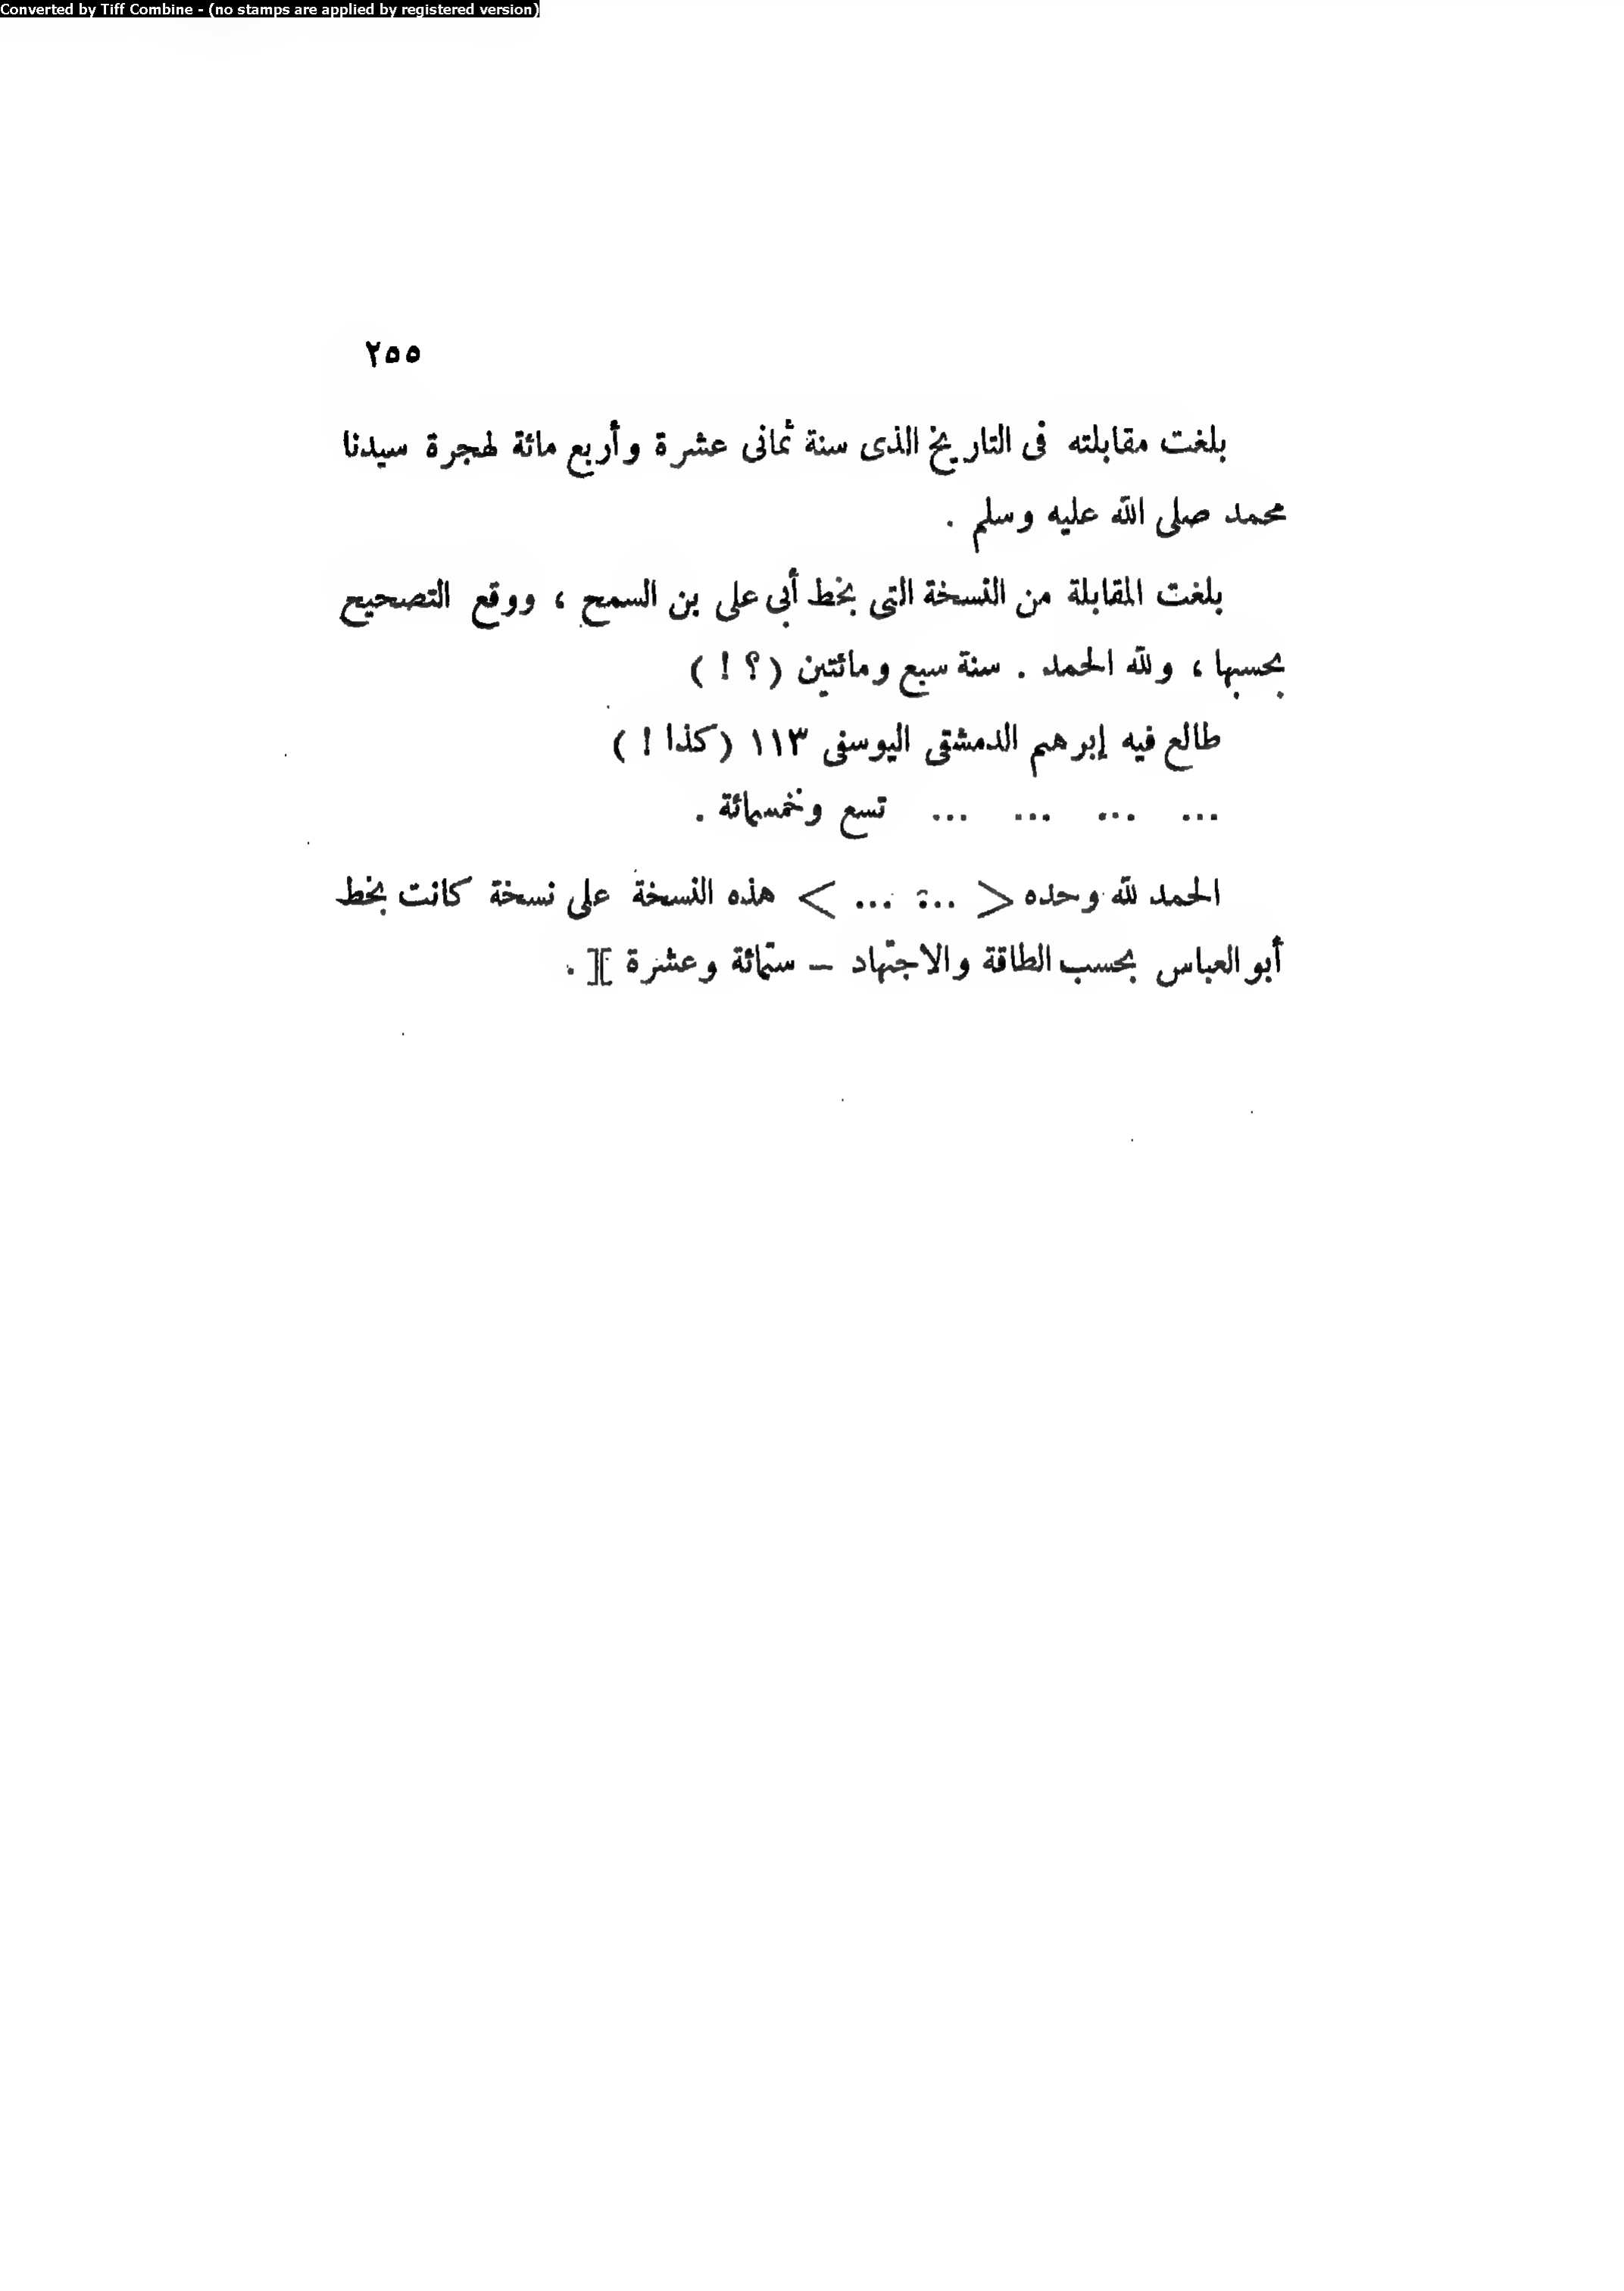 Converted by Tiff Combine - (no stamps are applied by registered version)
٢٥٥
بلغت مقابلته فى التاريخ الذى سنة ثمانى عشرة وأربع مائة لهجرة سيدنا
محمد صلى الله عليه وسلم .
بلغت المقابلة من النسخة التى بخط أبى على بن السمح ، ووقع التصحيح
بحسبها ، ولله الحمد . سنة سبع ومائتين (؟ !)
طالع فيه إبرهيم الدمشقى اليوسفى ١١٣ (كذا !)
... ... ... ... تسع وخمسمائة .
الحمد لله وحده < ... ... > هذه النسخة على نسخة كانت بخط
أبو العباس بحسب الطاقة والاجتهاد – ستمائة وعشرة ]] .